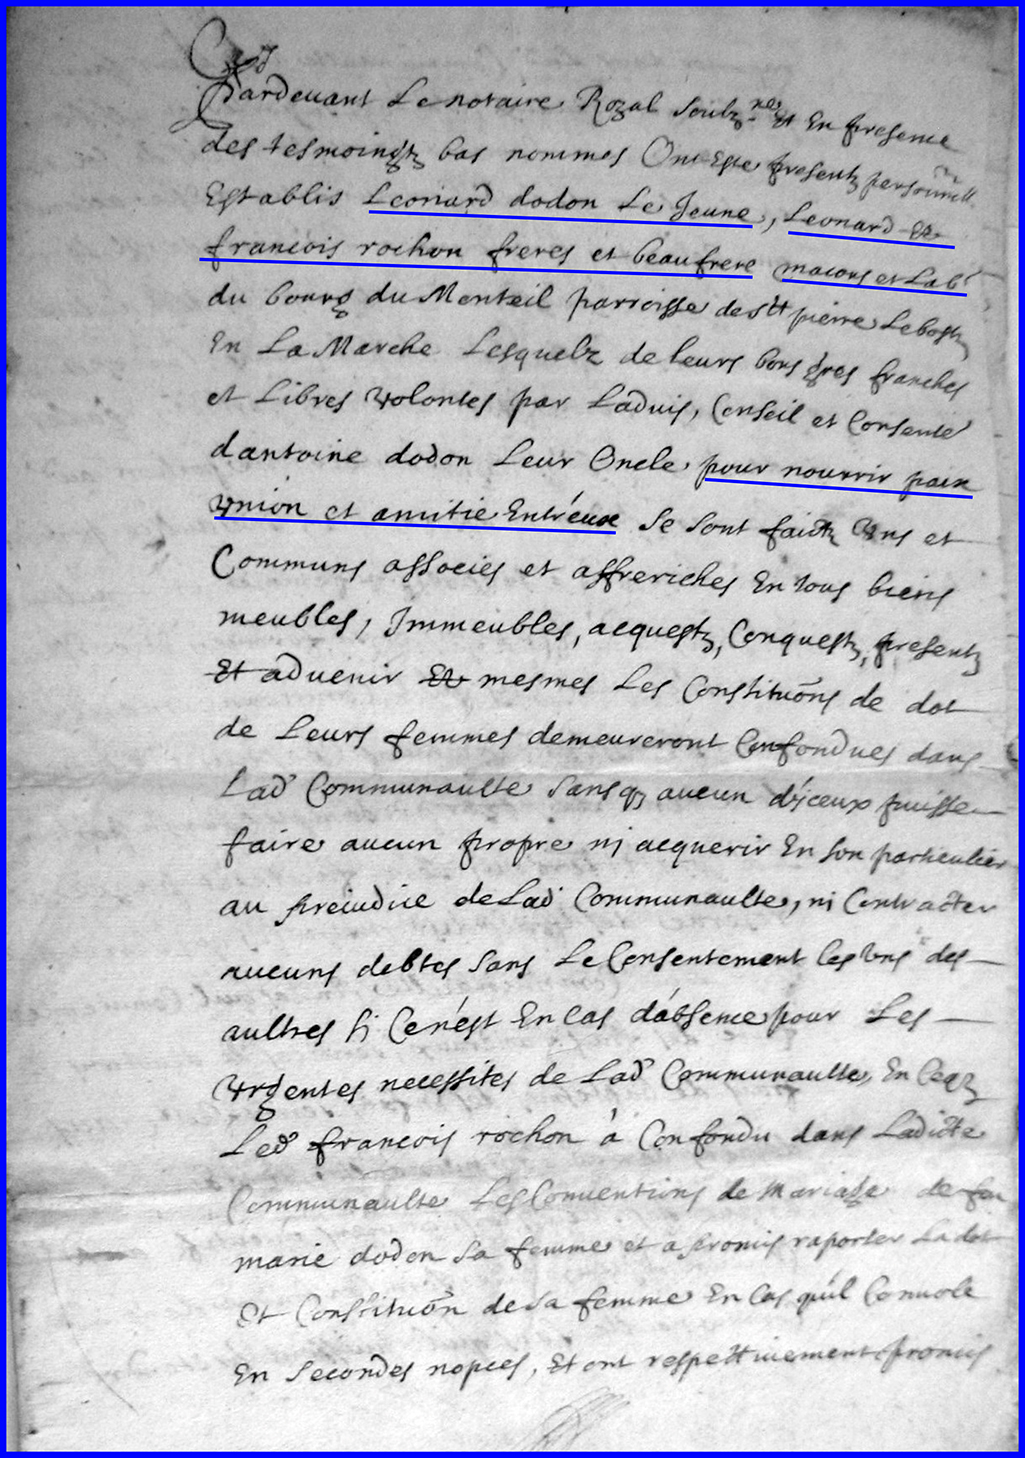 Pardevant Le notaire Royal soubz.ne et En presence
des tesmoingtz bas nommes Ont Este presentz personnell
Establis Leonard dodon Le Jeune, Leonard Et
francois rochon freres et beaufrere macons et Lab
du bourg du Monteil parroisse de st pierre Lebostz
En La Marche Lesquelz de leurs bons gres franches
et Libres volontes par Ladvis, Conseil et Consente
dantoine dodon Leur Oncle pour nourrir paix
vnion et amitie Entr'eux se sont faictz vns et
Communs associes et affreriches En tous biens
meubles, Immeubles, acquestz, Conquestz, presentz
Et advenir Et mesmes Les Constituõns de dot
de Leurs femmes demeureront Confondues dans
Lad Communaulte sans q aucun d'yceux puisse
faire aucun propre nj acquerir En son particulier
au preiudice de Lad Communaulte, ni Contracter
aucuns debtes sans Le Consentement les vns des
aultres si Ce n'est En Cas d'absence pour Les
vrgentes necessites de Lad Communaulte, En Ceq
Led francois rochon à Confondu dans Ladicte
Communaulte Les Conventions de Mariage de feu
marie dodon sa femme et a promis raporter La dot
Et Constituõn de sa femme En Cas qu'il Convole
En secondes nopces, Et ont respettivement promis